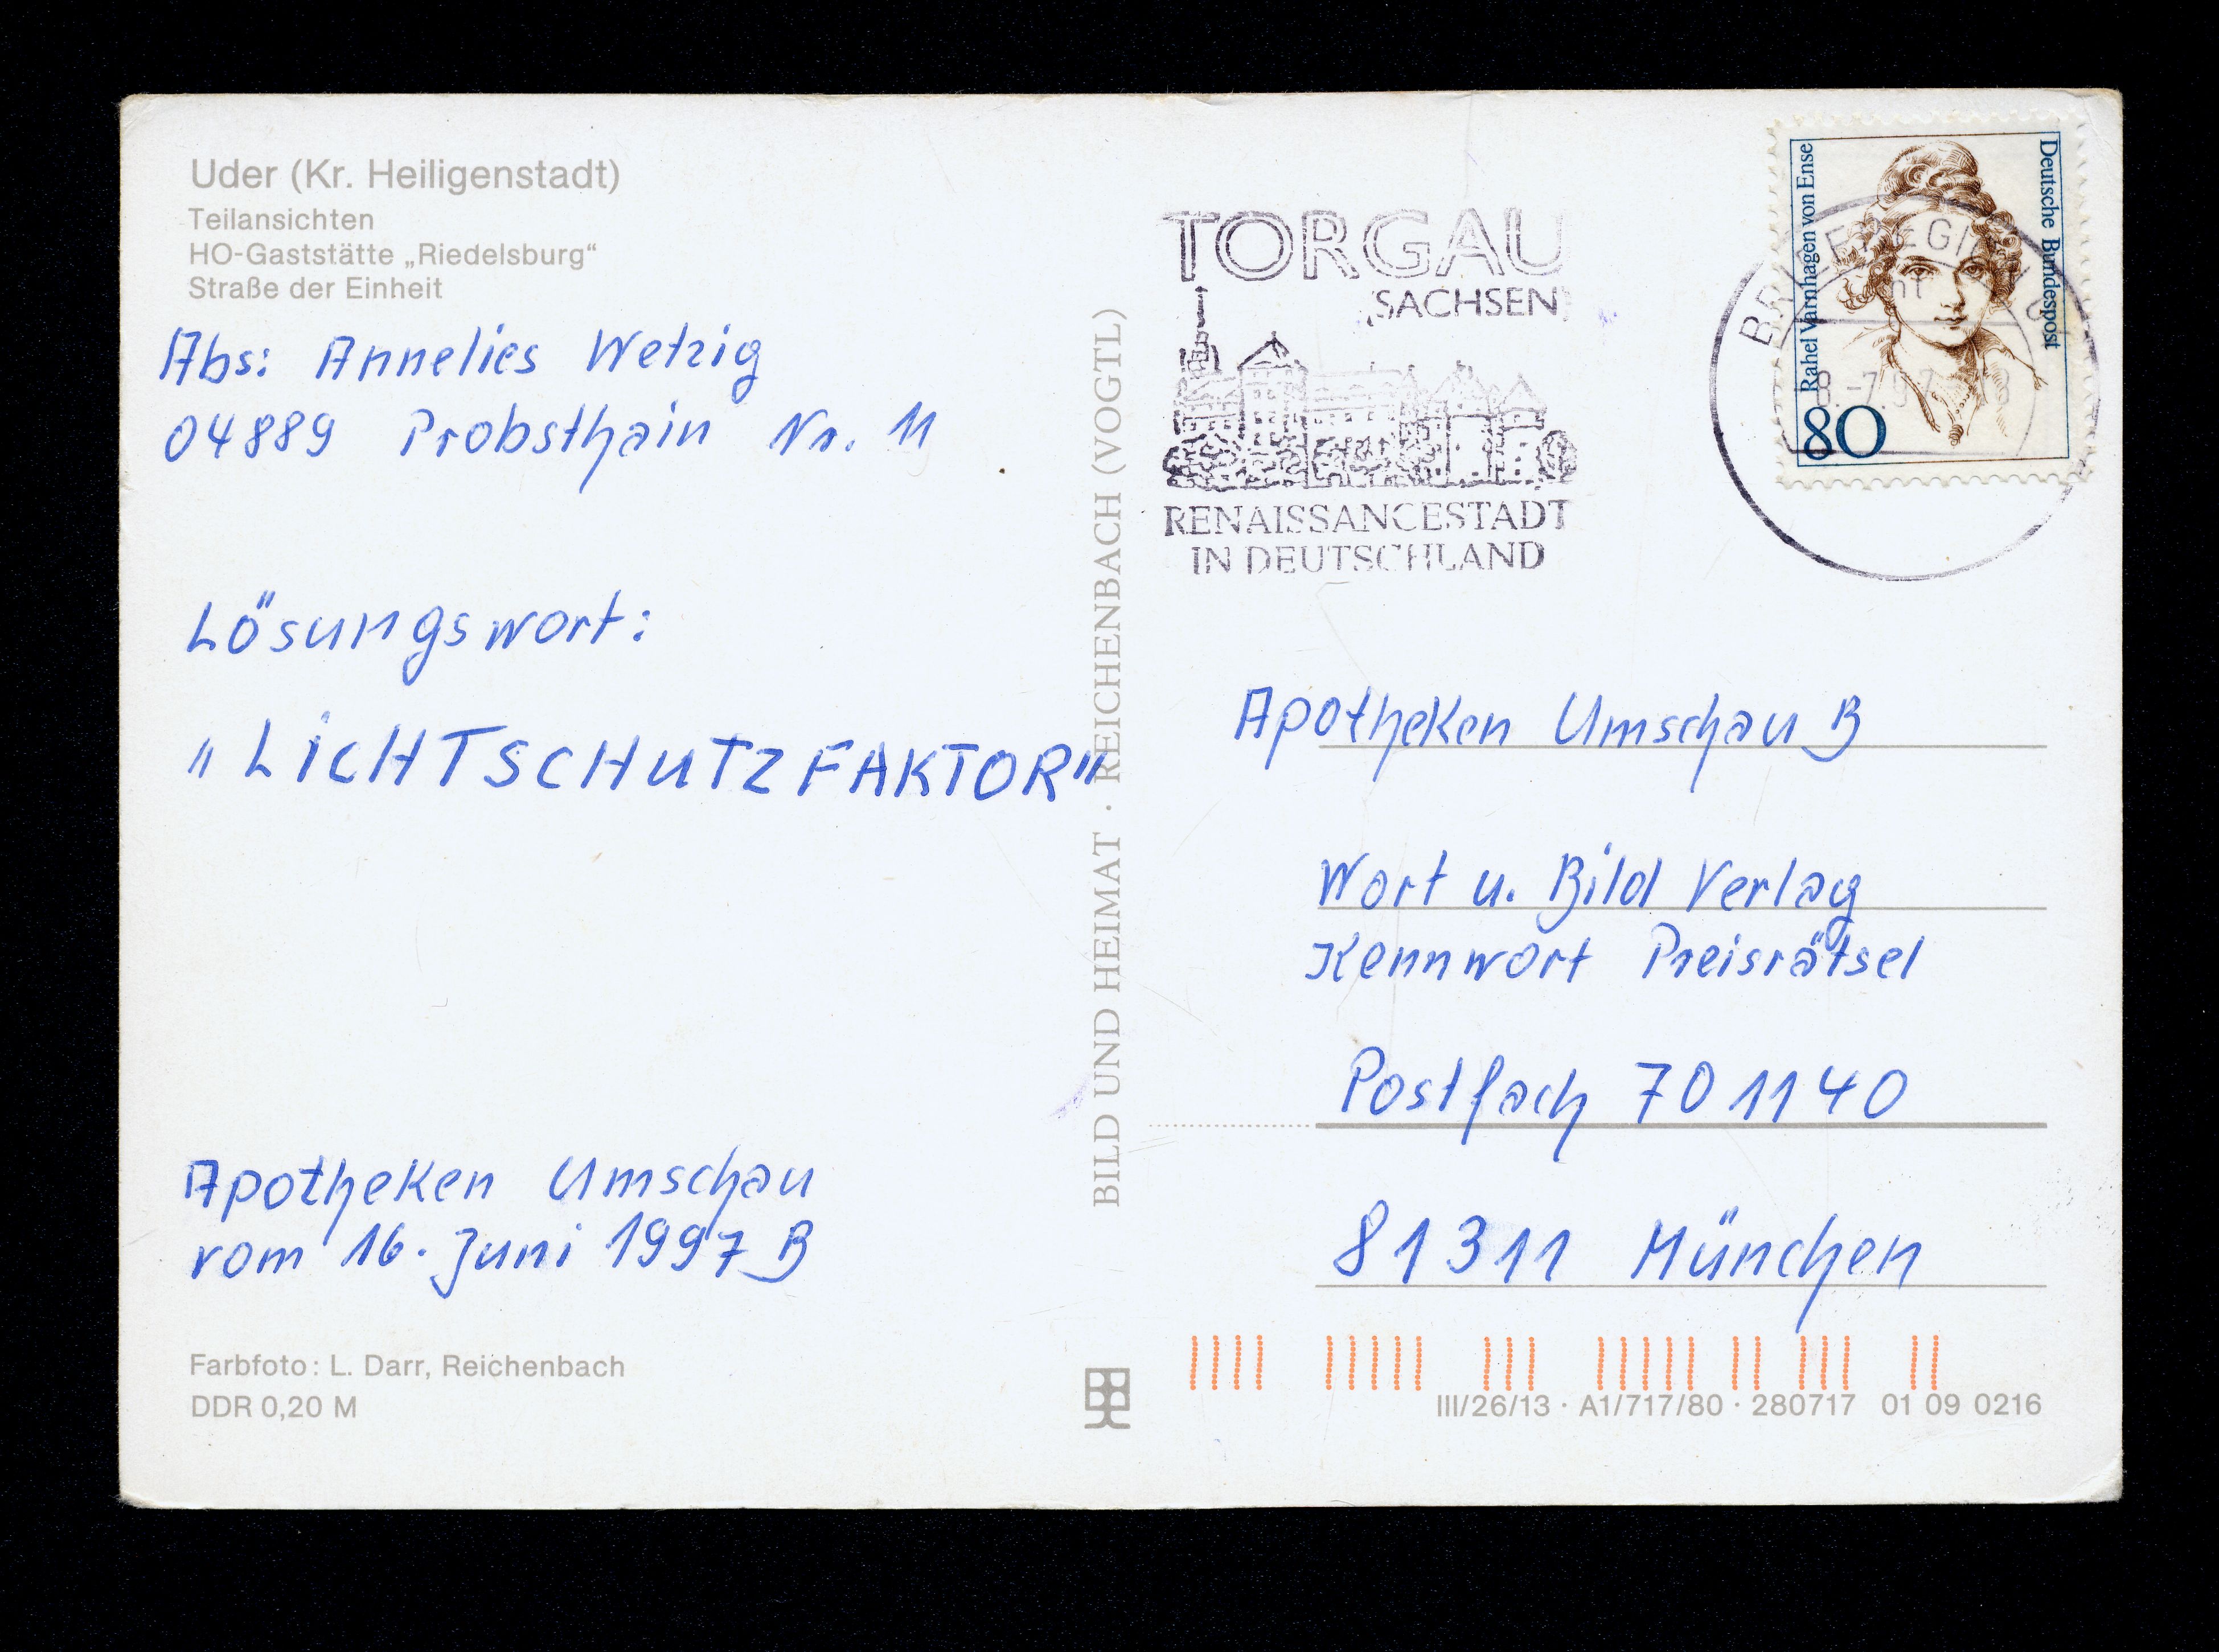 Uder (Kr. Heiligenstadt)
Teilansichten
HO-Gaststätte „Riedelsburg“
Straße der Einheit
Abs: Annelies Wetzig
04889 Probsthain Nr. 11
Lösungswort:
"LiCHTSCHUTZFAKTOR"
Apotheken Umschau
vom 16. Juni 1997 B
Farbfoto: L. Darr, Reichenbach
DDR 0,20 M
BILD UND HEIMAT · REICHENBACH (VOGTL)
TORGAU
(SACHSEN)
RENAISSANCESTADT
IN DEUTSCHLAND
Rahel Varnhagen von Ense
Deutsche Bundespost
80
Apotheken Umschau B
Wort u. Bild Verlag
Kennwort Preisrätsel
Postfach 701140
81311 München
III/26/13 · A1/717/80 · 280717 01 09 0216